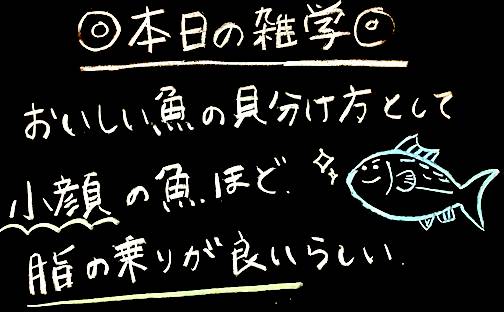 ◎本日の雑学◎
おいしい魚の見分け方として
小顔の魚ほど
脂の乗りが良いらしい.